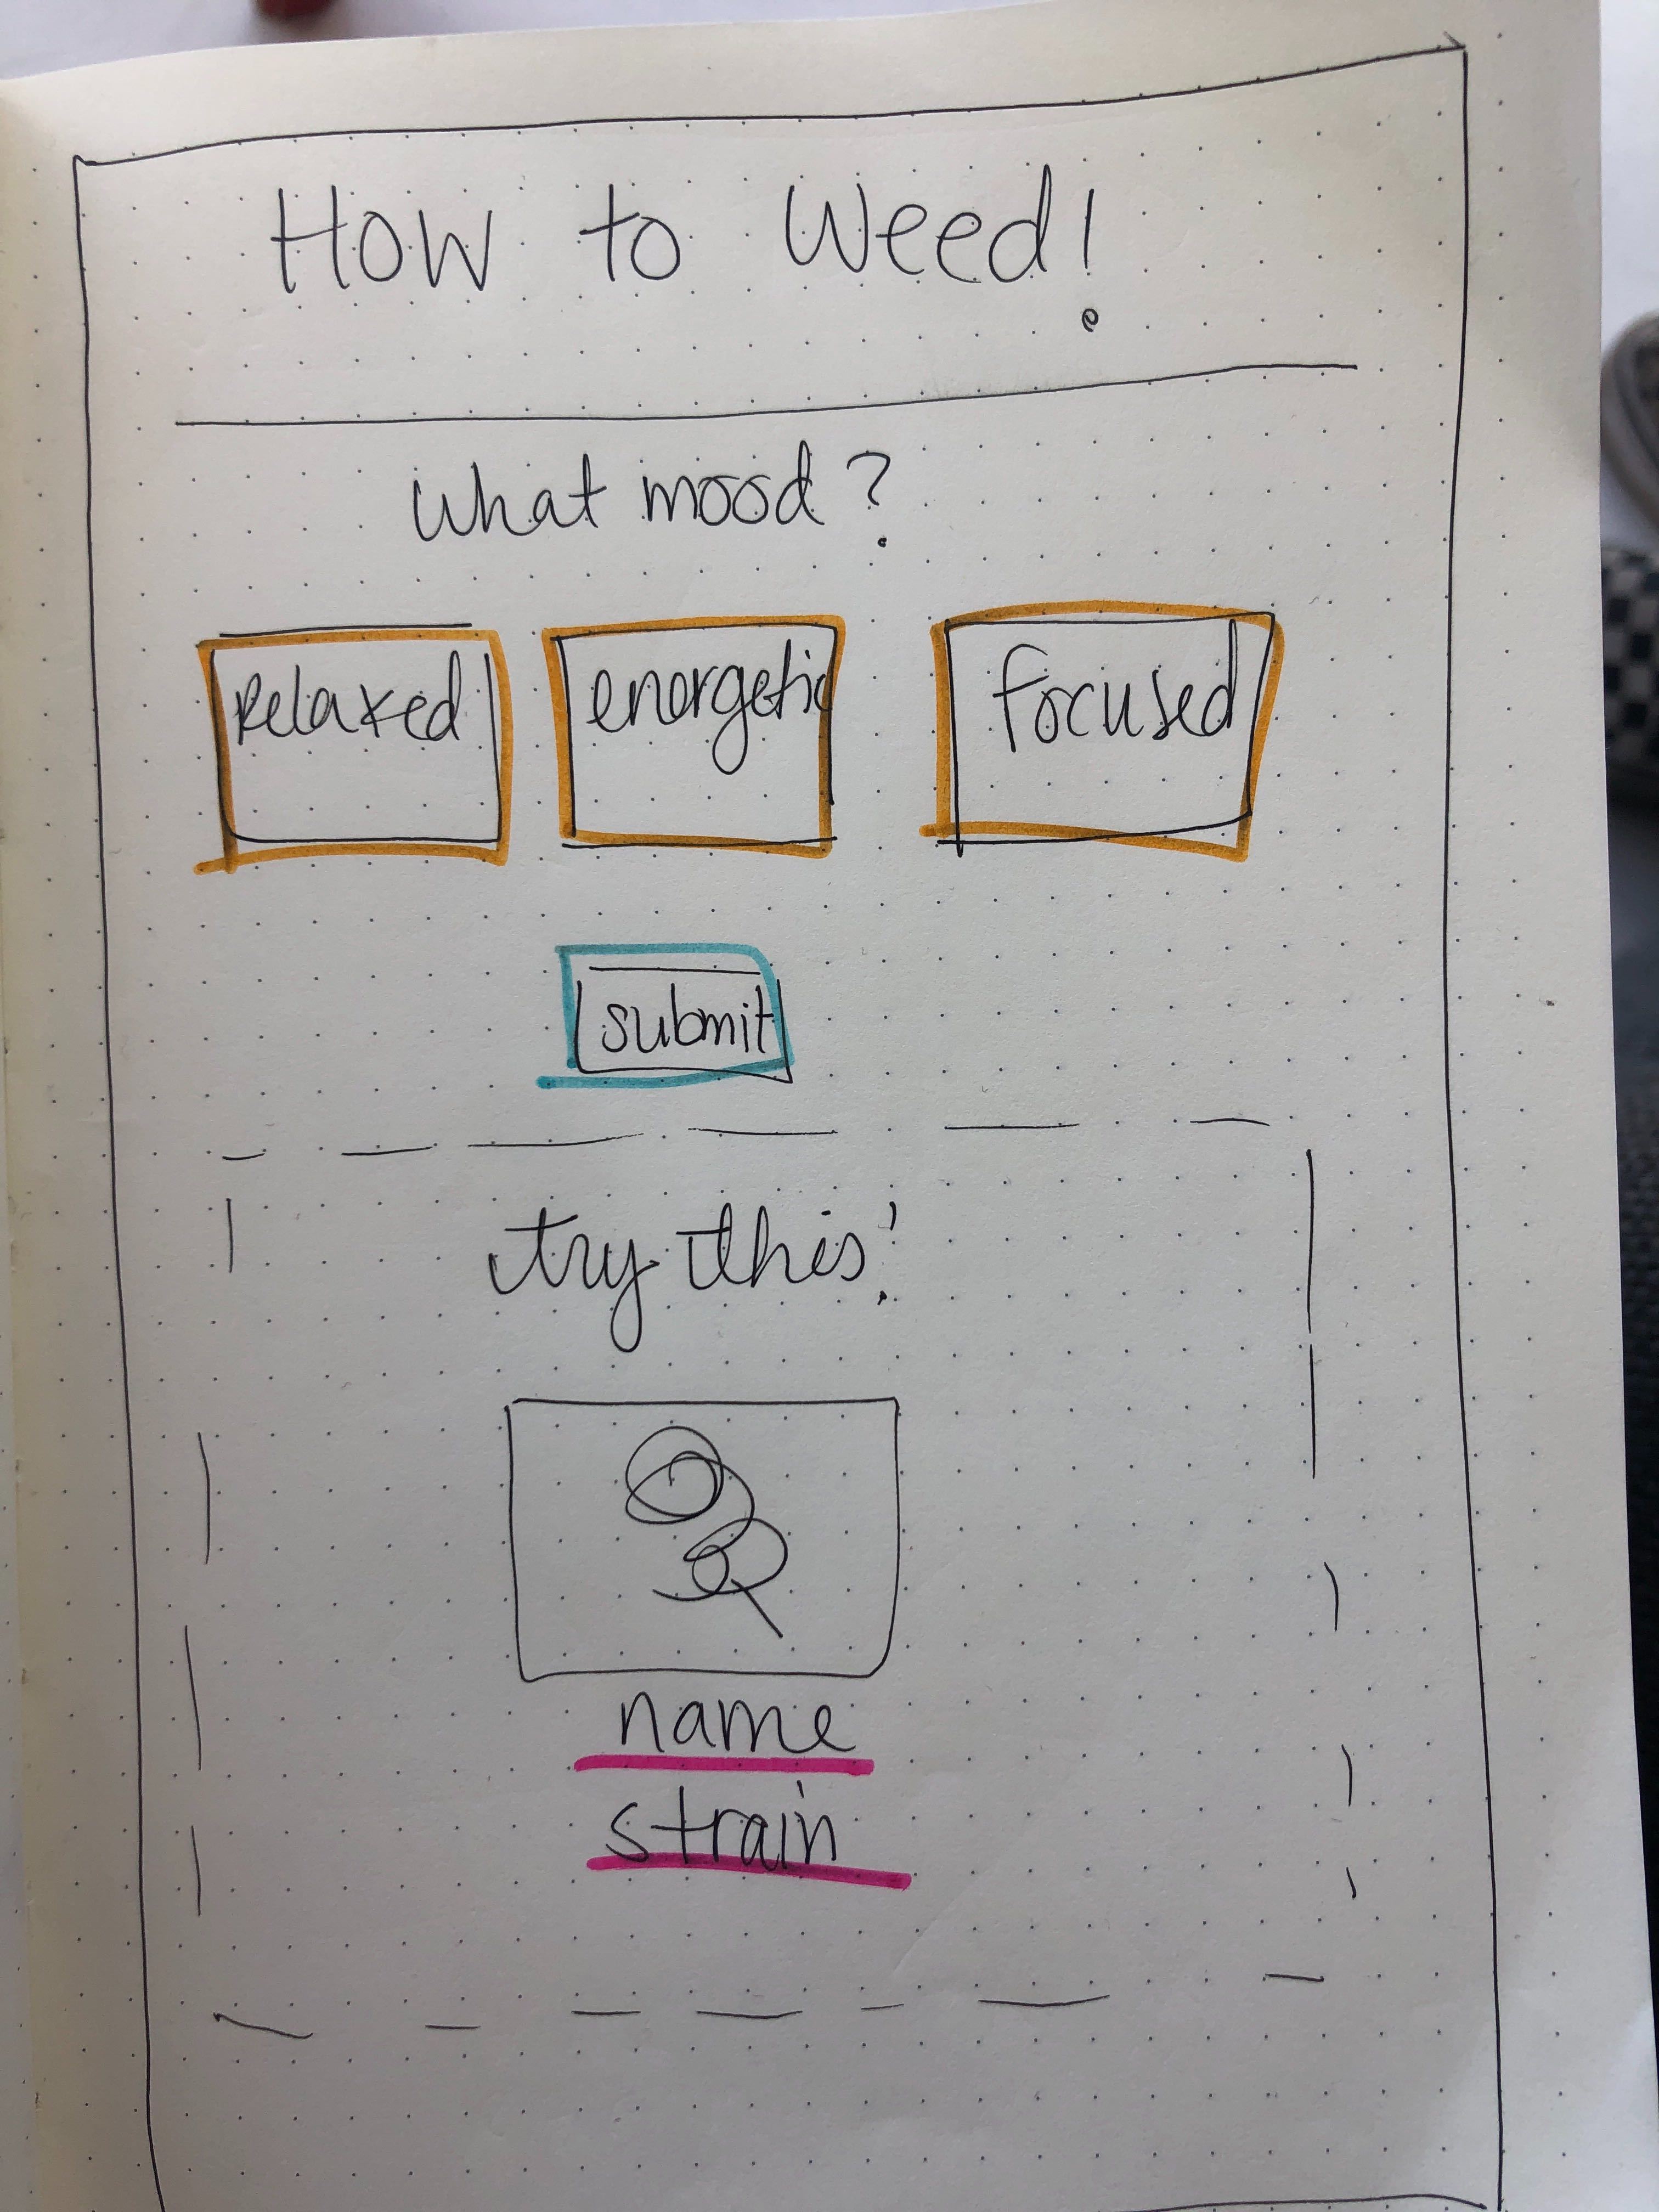 How to Weed!
What mood?
Relaxed energetic focused
submit
try this!
name
strain